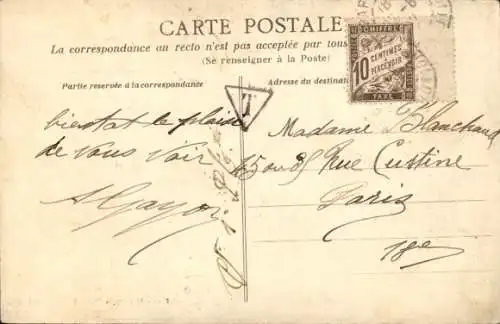 CARTE POSTALE
La correspondance au recto n'est pas acceptée par tous
(Se renseigner à la Poste)
Partie reservée à la correspondance
Adresse du destinat
CHIFFRE
10 CENTIMES À PERCEVOIR
TAXE
T
bientot le plaisir
de vous voir
Madame Blanchard
45 ou 85 Rue Custine
Paris
18e